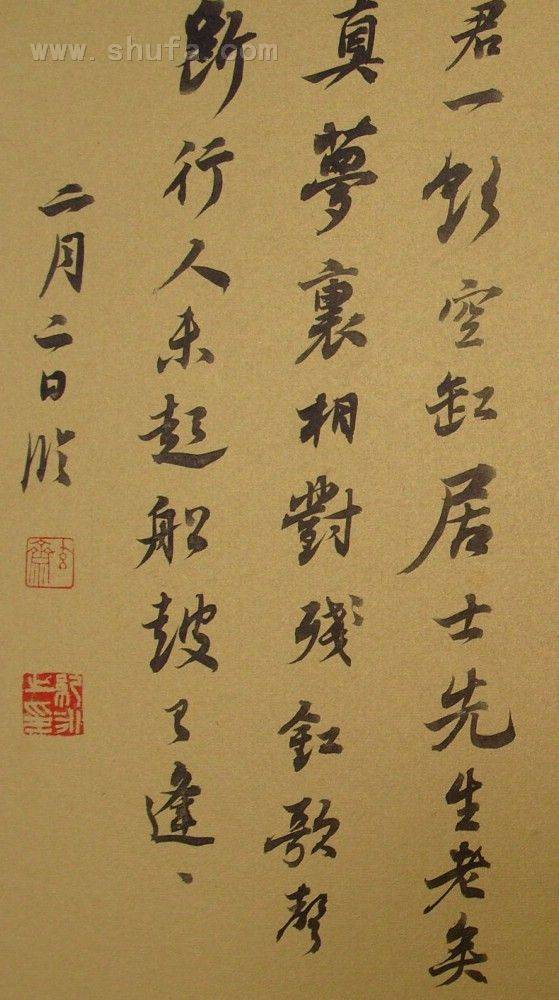 www.shufa.com
君一飲空缸居士先生老矣
真夢裏相對殘釭歌聲
斷行人未起船鼓已逢、
二月二日臨
玄齋